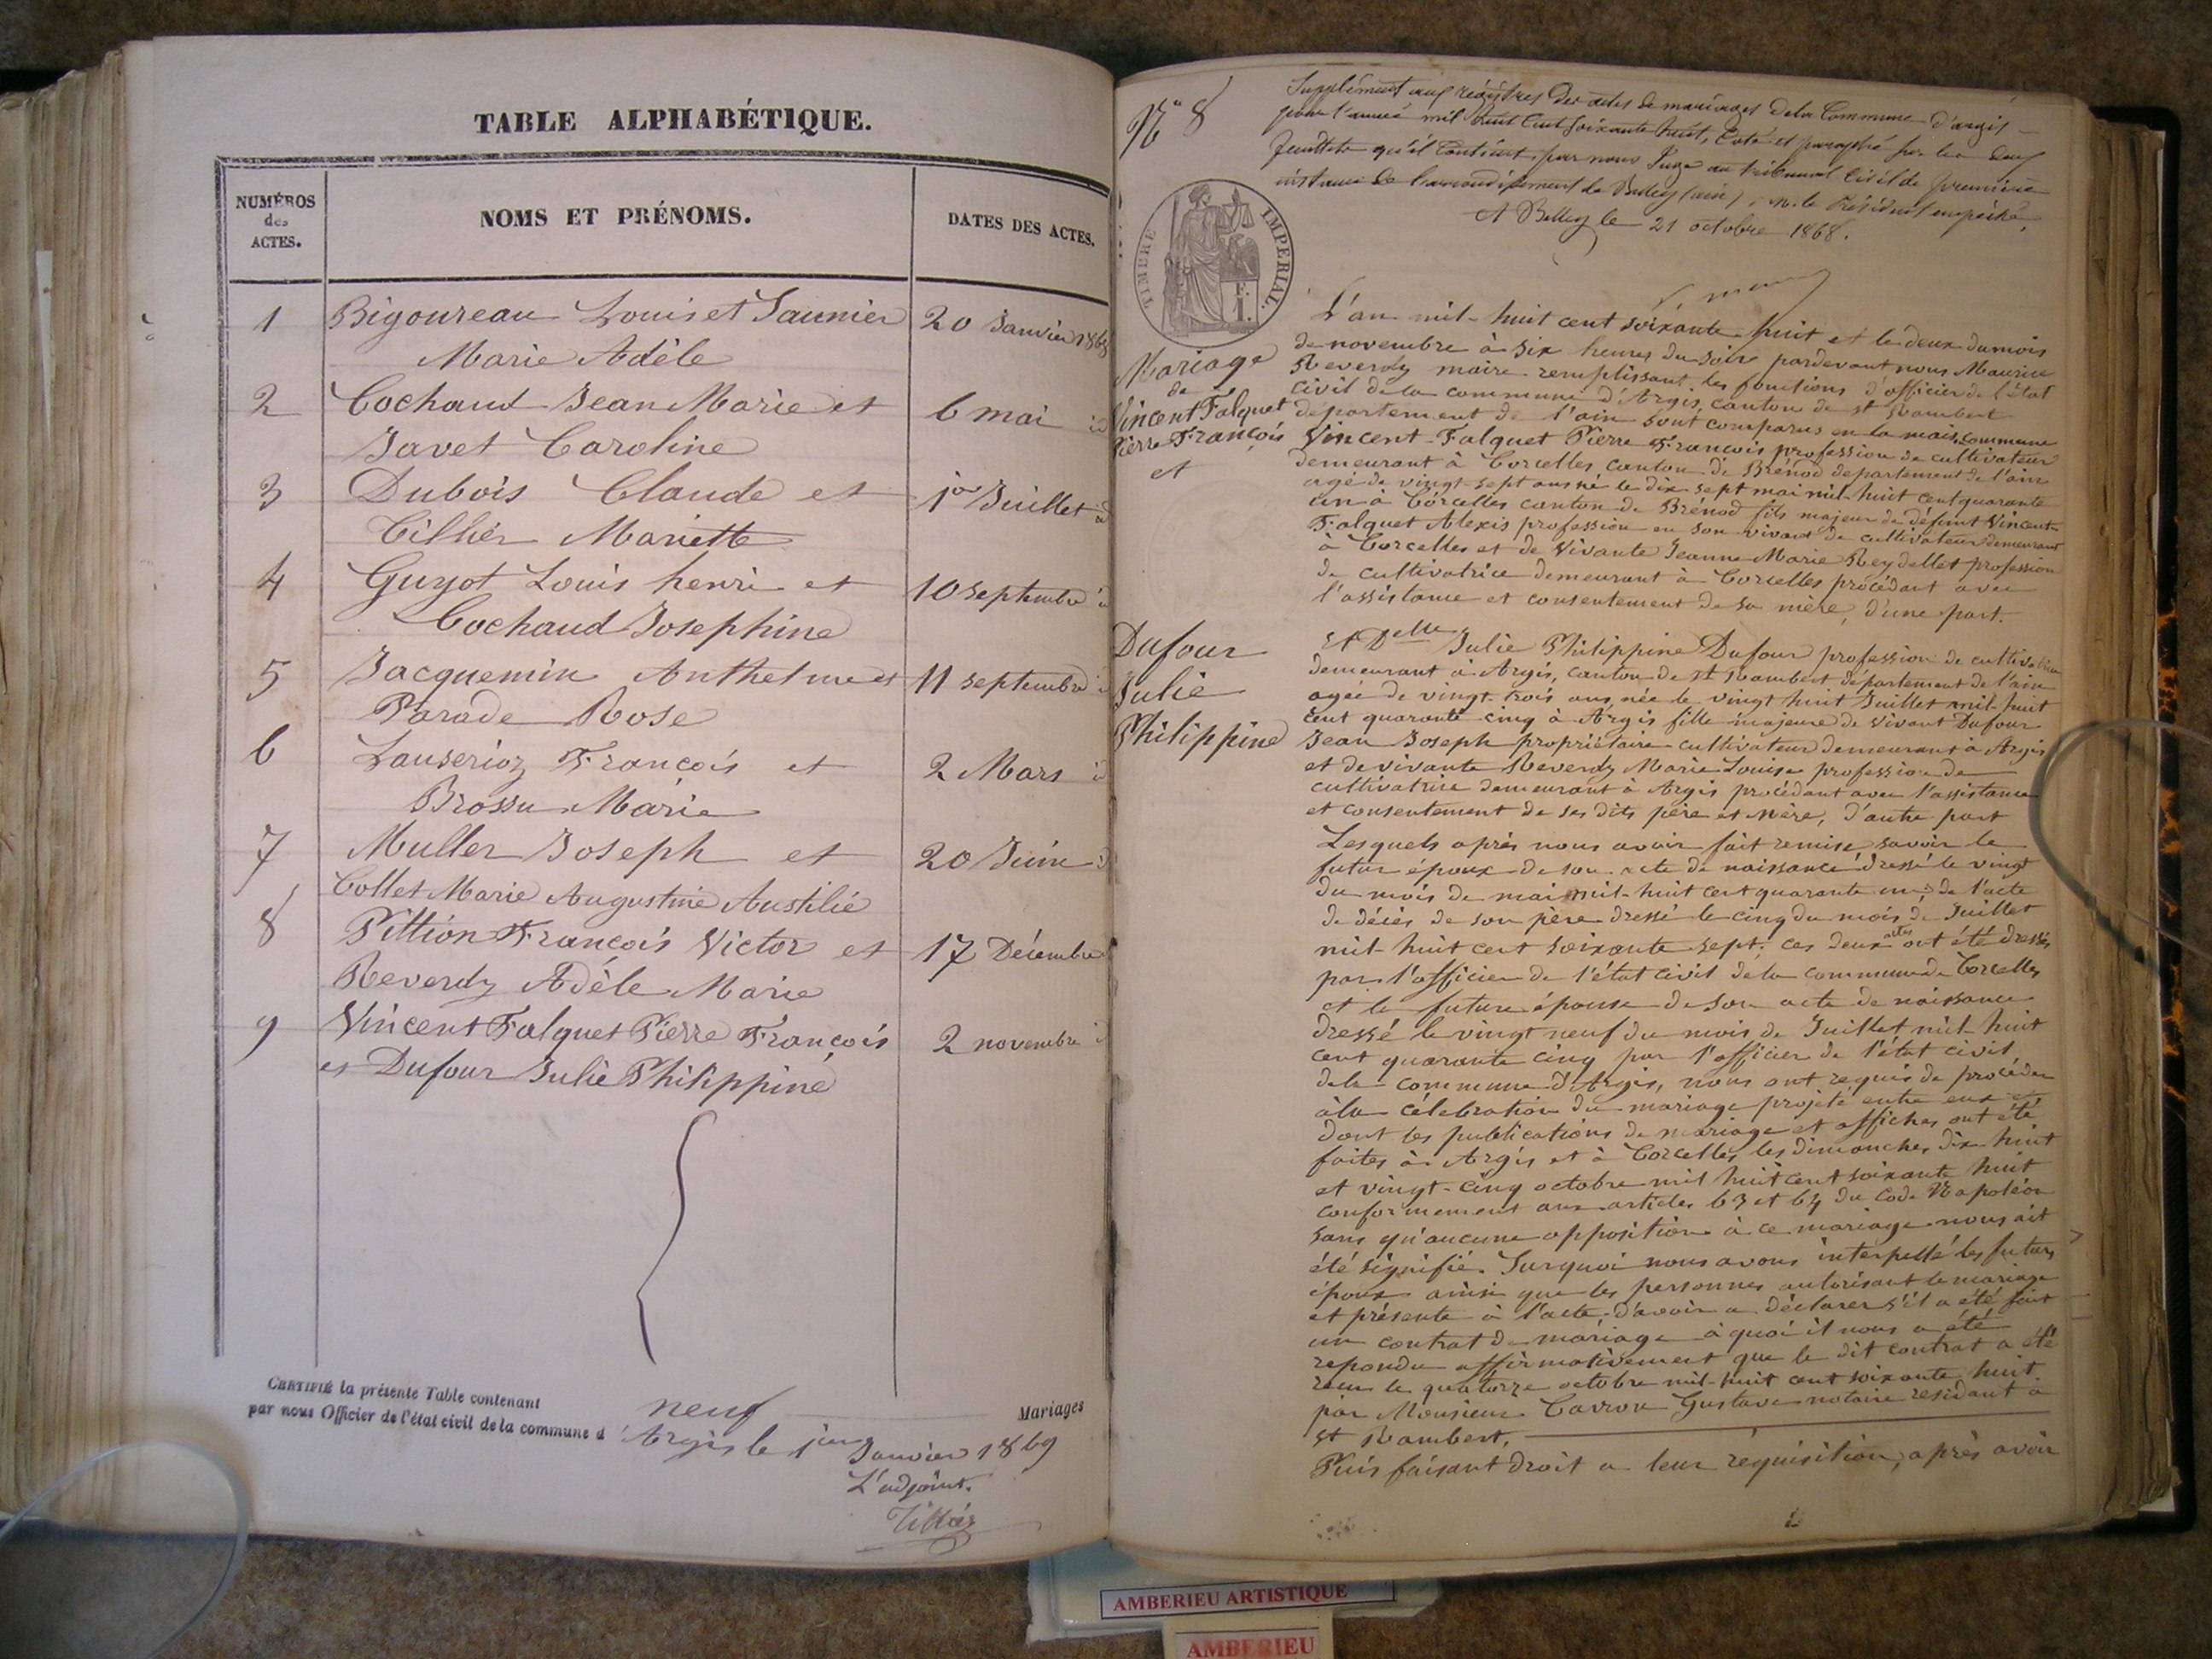 TABLE ALPHABÉTIQUE.
NUMÉROS
des
ACTES.
NOMS ET PRÉNOMS.
DATES DES ACTES.
1 Bigoureau Louis et Saunier 20 Janvier 1868
Marie Adèle
2 Cochaud Jean Marie et 6 mai id
Javet Caroline
3 Dubois Claude et 1er Juillet id
Tillier Mariette
4 Guyot Louis henri et 10 septembre
Cochaud Josephine
5 Jacquemin Anthelme et 11 septembre
Parade Rose
6 Lauserioz François et 2 Mars
Brossu Marie
7 Muller Joseph et 20 Juin
Collet Marie Augustine
8 Pittion François Victor et 17 Décembre
Reverdy Adèle Marie
9 Vincent Falquet Pierre François 2 novembre
et Dufour Julie Philippine
CERTIFIÉ la présente Table contenant neuf Mariages
par nous Officier de l'état civil de la commune d'Argis le 1er Janvier 1869
L'adjoint.
No 8
Supplément aux registres des actes de mariages de la Commune d'argis
pour l'année mil huit cent soixante huit, Coté et paraphé sur les deux
feuillets qu'il Contient, par nous Juge au tribunal Civil de première
instance de l'arrondissement de Belley (ain), M. le Président empêché,
A Belley le 21 octobre 1868.
TIMBRE IMPERIAL.
F.
1.
Mariage
de
Vincent Falquet
Pierre François
et
Dufour
Julie
Philippine
L'an mil-huit cent soixante huit et le deux du mois
de novembre à six heures du soir pardevant nous Maurice
Reverdy maire remplissant les fonctions d'officier de l'état
civil de la commune d'Argis, canton de St Rambert
departement de l'ain sont comparus en la maison commune
Vincent-Falquet Pierre François profession de cultivateur
demeurant à Corcelles canton de Brénod departement de l'ain
agé de vingt-sept ans né le dix sept mai mil-huit cent quarante
un à Corcelles canton de Brénod fils majeur de défunt Vincent
Falquet Alexis profession en son vivant de cultivateur demeurant
à Corcelles et de vivante Jeanne Marie Reydellet profession
de cultivatrice demeurant à Corcelles procédant avec
l'assistance et consentement de sa mère, d'une part.
Et Delle Julie Philippine Dufour profession de cultivatrice
demeurant à Argis, canton de St Rambert département de l'ain
agée de vingt-trois ans née le vingt huit Juillet mil-huit
cent quarante cinq à Argis fille majeure de vivant Dufour
Jean Joseph propriétaire cultivateur demeurant à Argis
et de vivante Reverdy Marie Louise profession de
cultivatrice demeurant à Argis procédant avec l'assistance
et consentement de ses dits père et mère, d'autre part
Lesquels après nous avoir fait remise savoir le
futur époux de son acte de naissance dressé le vingt
du mois de mai mil-huit cent quarante un; de l'acte
de décès de son père dressé le cinq du mois de Juillet
mil-huit cent soixante sept; ces deux actes ont été dressés
par l'officier de l'état civil de la commune de Corcelles
et la future épouse de son acte de naissance
dressé le vingt neuf du mois de Juillet mil huit
cent quarante cinq par l'officier de l'état civil
de la commune d'Argis, nous ont requis de procéder
à la célébration du mariage projeté entre eux et
dont les publications de mariage et affiches ont été
faites à Argis et à Corcelles les dimanches dix-huit
et vingt-cinq octobre mil huit cent soixante huit
conformement aux articles 63 et 64 du Code Napoléon
sans qu'aucune opposition à ce mariage nous ait
été signifié. Surquoi nous avons interpellé les futurs
époux ainsi que les personnes autorisant le mariage
et présente à l'acte, d'avoir a déclarer s'il a été fait
un contrat de mariage à quoi il nous a été
repondu affirmativement que le dit contrat a été
recu le quatorze octobre mil-huit cent soixante huit
par Monsieur Carron Gustave notaire residant à
St Rambert,
Puis faisant droit a leur réquisition, après avoir
AMBERIEU ARTISTIQUE
AMBERIEU